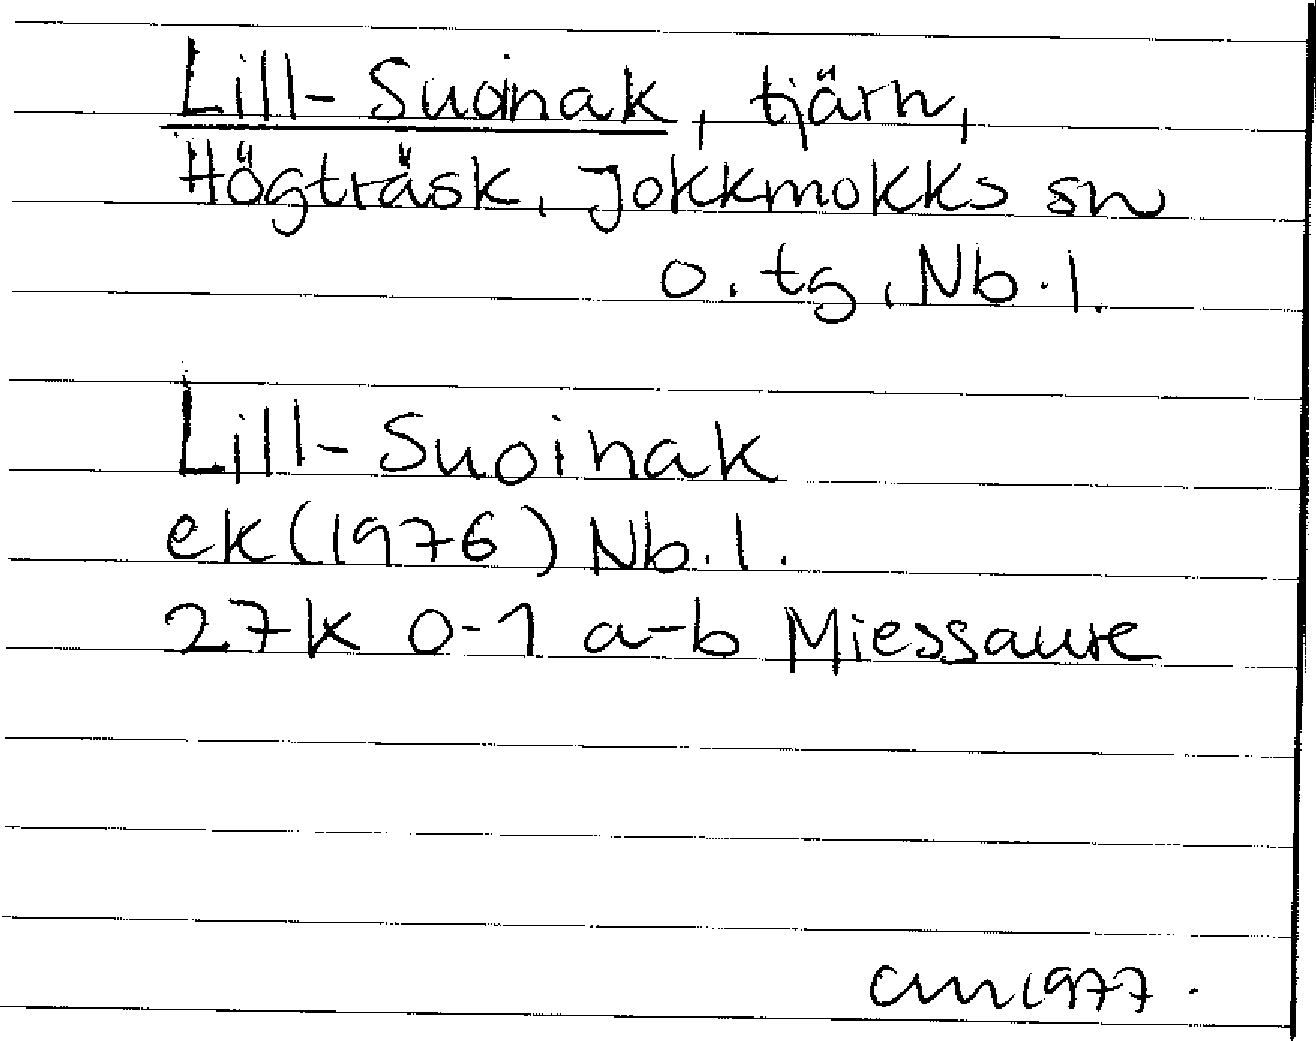 Lill-Suoinak, tjärn,
Högträsk, Jokkmokks sn
o. tg, Nb. l.
Lill-Suoinak
ek (1976) Nb. l.
27K 0-1 a-b Miessaure
cm 1977.